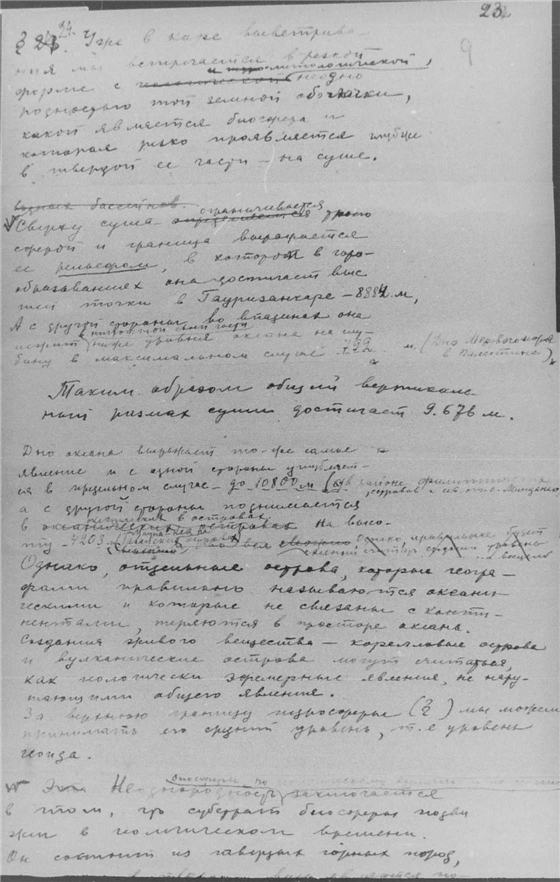 23
9
§ 24. Уже в коре выветрива-
ния мы встречаемся в резкой
форме с и петрологической, неодно
родностью той земной оболочки,
какой является биосфера и
которая резко проявляется глубже
в твердой ее части – на суше.
водных бассейнов.
Сверху суша ограничивается определяется тропо
сферой и граница выражается
ее рельефом, в котором в горо-
образованиях она достигает выс
шей точки в Гауризанкаре – 8884 м,
А с другой стороны во впадинах она
ниже уровня океана на глу-
бину в максимальном случае м. (Дно Мертвого моря
в Палестине)
Таким образом общий вертикаль-
ный размах суши достигает 9.676 м.
Дно океана выражает то-же самое
явление и с одной стороны углубляет-
ся в предельном случае – до 10800 м (в районе
островов
а с другой стороны поднимается
в островах на высо-
ту – 4203
Однако, отдельные острова, которые геогра-
фами правильно называются океани-
ческими и которые не связаны с конти-
нентами, теряются в просторе океана.
Создания живого вещества – коралловые острова
и вулканические острова могут считаться,
как геологически эфемерные явления, не нару-
шающими общего явления.
За верхнюю границу гидросферы (?) мы можем
принимать его средний уровень, т.е уровень
геоида.
Неоднородность биосферы заключается
в том, что субстрат биосферы подви
жен в геологическом времени.
Он состоит из твердых горных пород,